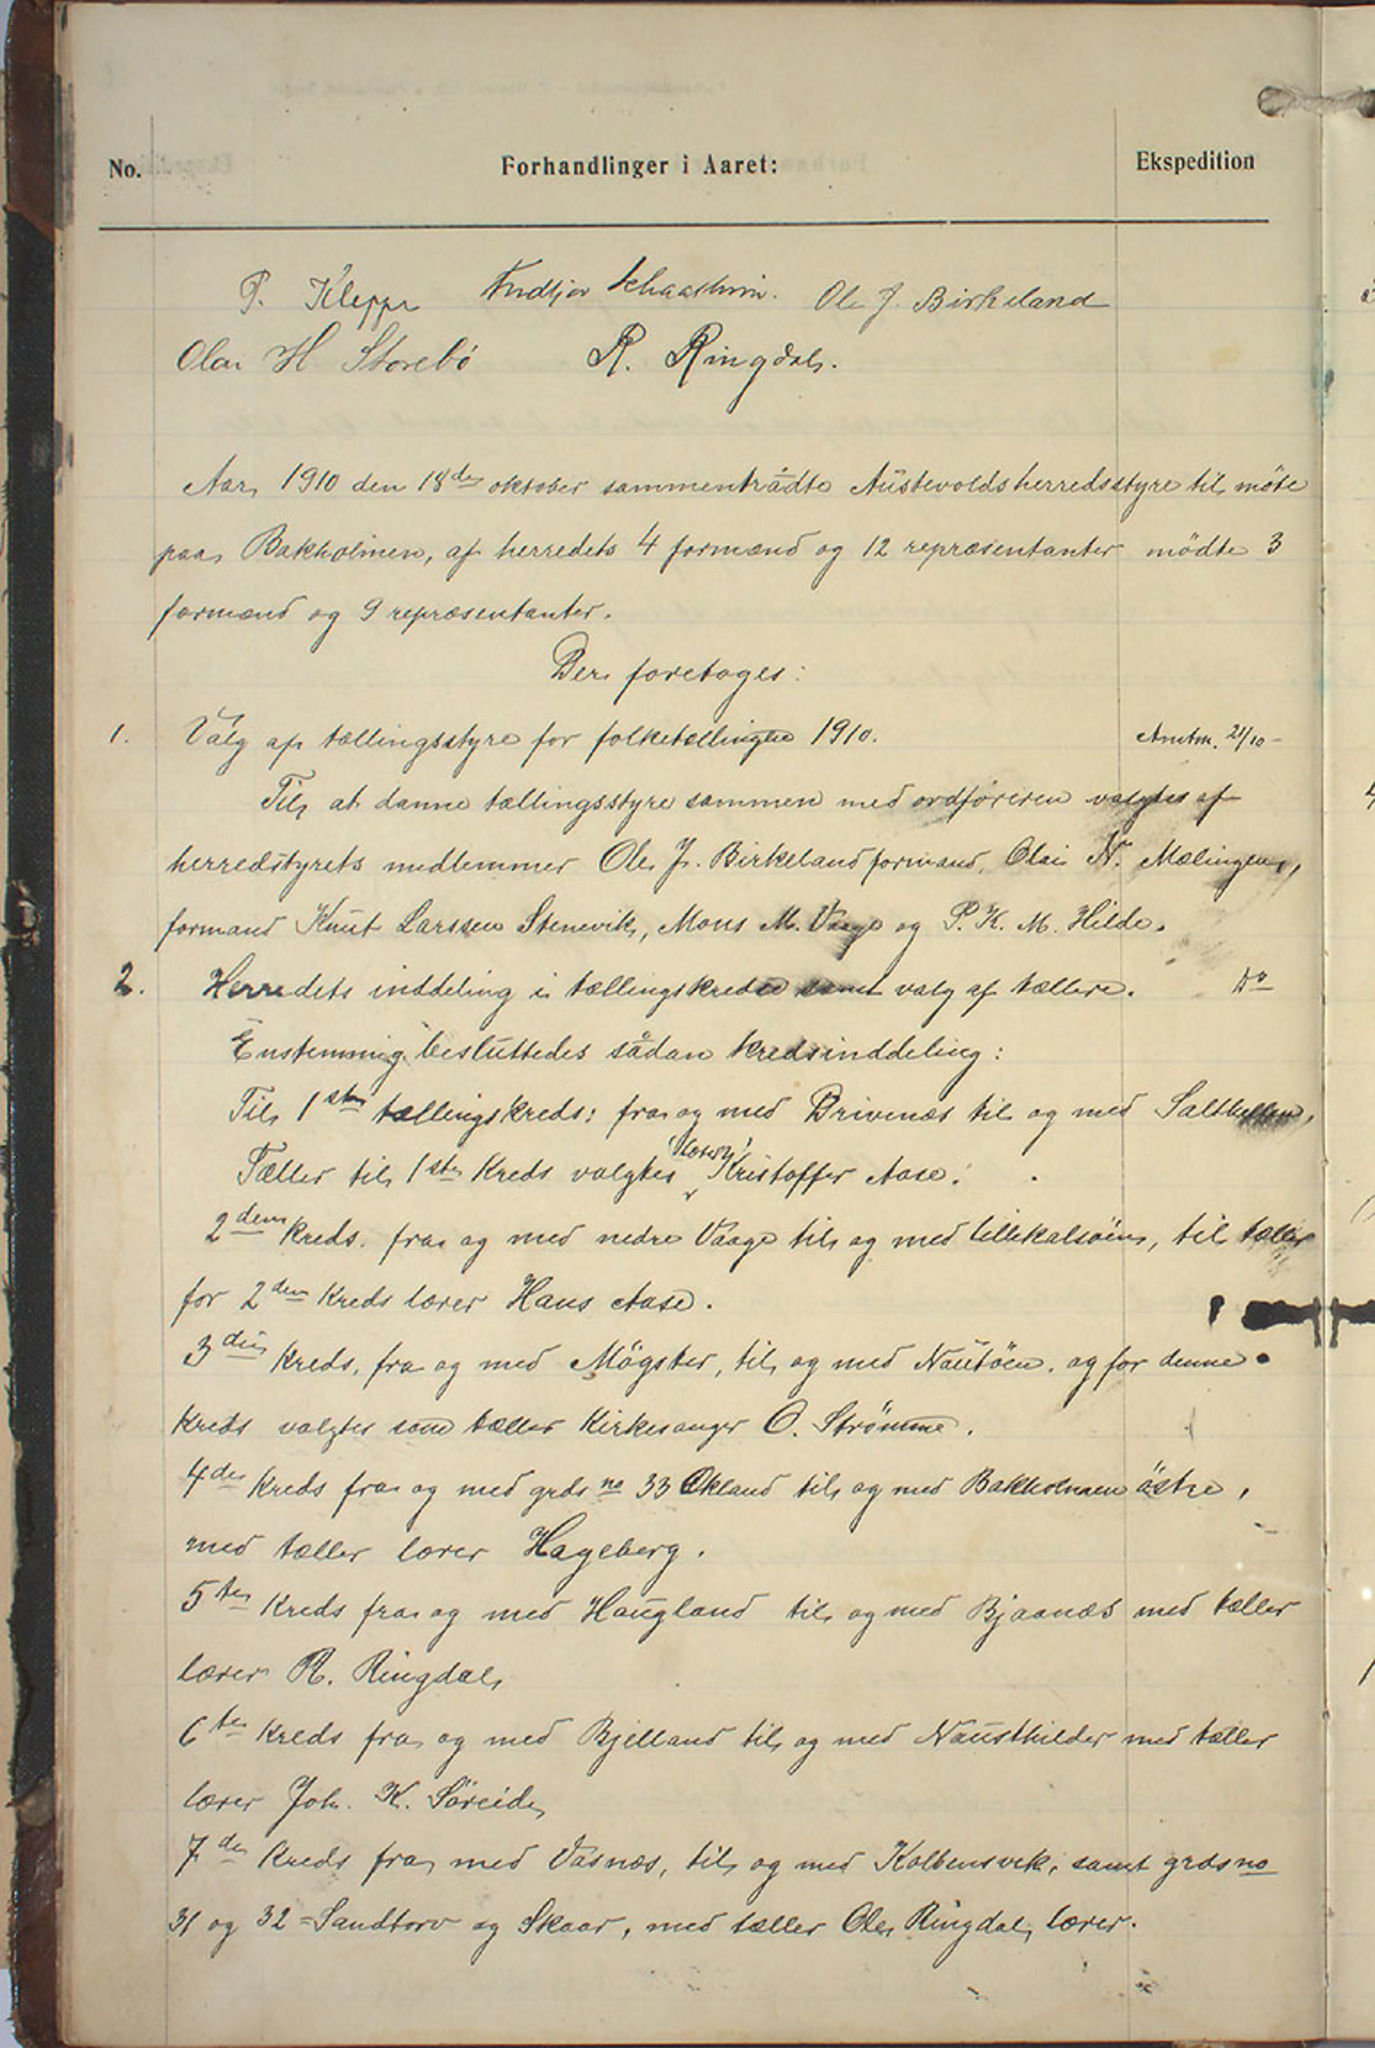 No.
Forhandlinger i Aaret:
Ekspedition
P. Kleppe
Ole J. Birkeland
H Storebö
R. Ringdal.
Aar 1910 den 18de oktober sammentrådte Austevolds herredsstyre til möte
paa Bakholmen, af herredets 4 formænd og 12 repræsentanter mödte 3
formænd og 9 repræsentanter.
Der foretoges:
1. Valg af tællingsstyre for folketællingen 1910.
Amtm. 21/10 –
Til at danne tællingsstyre sammen med ordføreren valgtes af
herredstyrets medlemmer Ole J. Birkeland formand, Olai N. Mælingen,
formand Knut Larssen Stenevik, Mons M. Vaage og P. K. M. Hilde.
2. Herredets inddeling i tællingskredse samt valg af tællere.
Do
Enstemmig besluttedes sådan kredsinddeling:
Til 1ste tællingskreds: fra og med Drivenæs til og med Salthellen,
Tæller til 1ste Kreds valgtes (lærer) Kristoffer Aase.
2den Kreds. fra og med nedre Vaage til og med Lillekalsöen, til tæller
for 2den Kreds lærer Hans Aase.
3die Kreds. fra og med Mögster, til og med Nautöen. og for denne
Kreds valgtes som tæller Kirkesanger O. Strömme.
4de Kreds fra og med grds no 33 Økland til og med Bakholmen östre,
med tæller lærer Hageberg.
5te Kreds fra og med Haugland til og med Bjaanæs med tæller
lærer R. Ringdal
6te Kreds fra og med Bjelland til og med Nausthilder med tæller
lærer Joh. K. Söreide
7de Kreds fra med Vasnæs, til og med Kolbensvik, samt grds no
31 og 32 = Sandtorv og Skaar, med tæller Ole Ringdal, lærer.